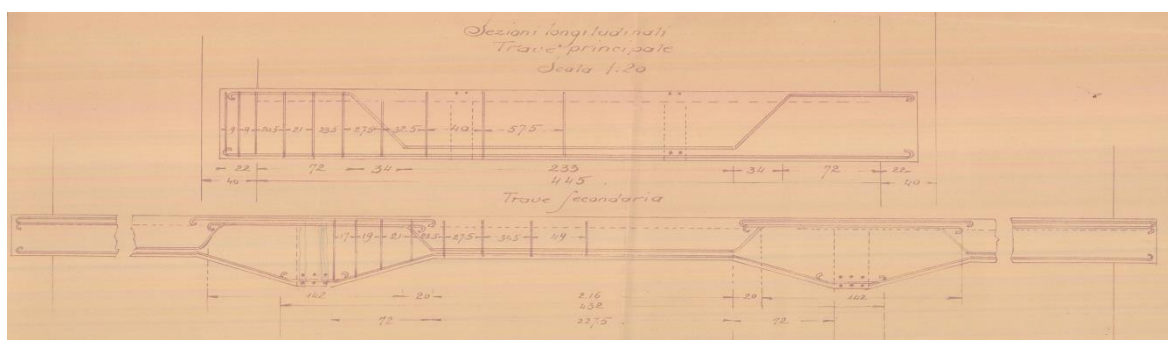 Sezioni longitudinali
Trave principale
Scala 1:20
9 9 20.5 21 23.5 27.5 32.5 40 57.5
22 72 34 233 34 72 22
40 445 40
Trave secondaria
17 19 21 23.5 27.5 34.5 49
142 20 216 20 142
432
72 227.5 72